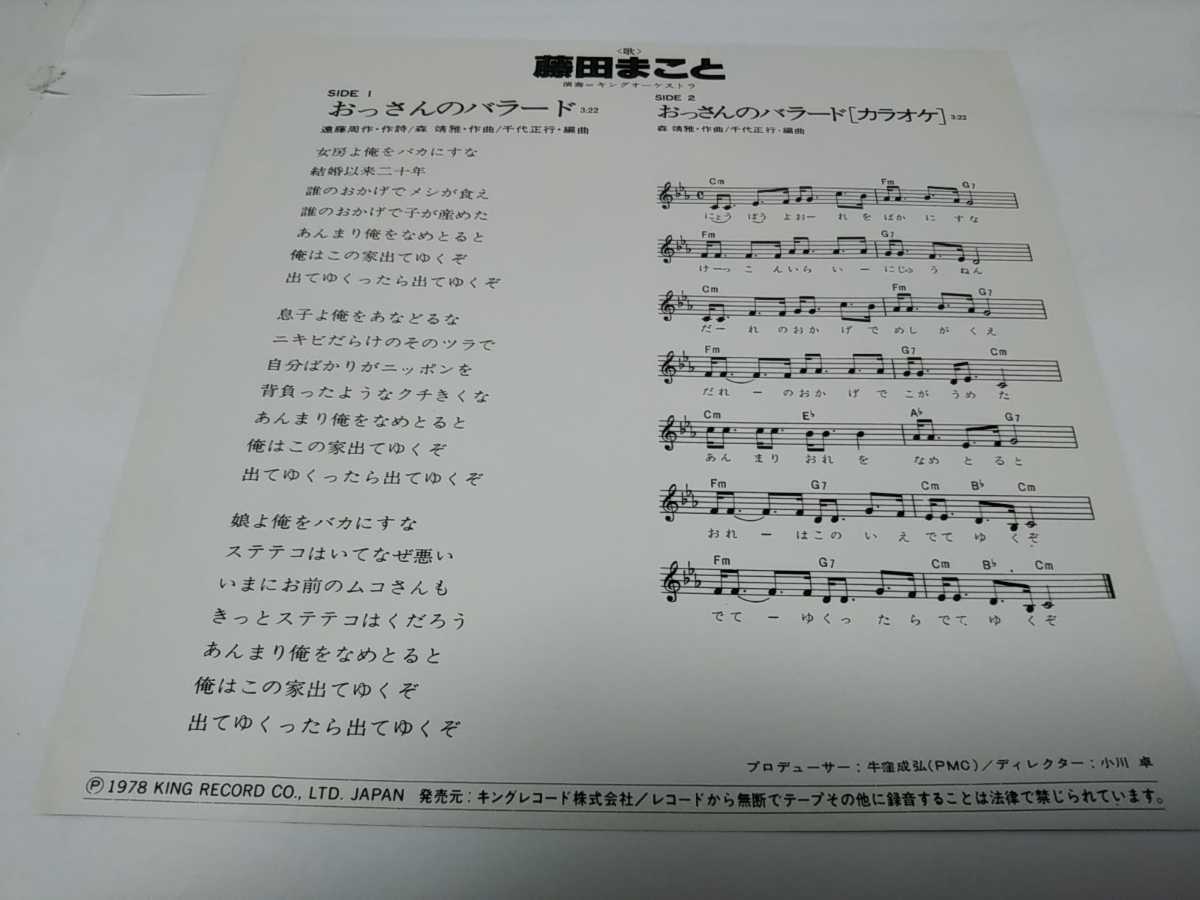 〈歌〉
藤田まこと
演奏＝キングオーケストラ
SIDE 1
おっさんのバラード 3:22
遠藤周作・作詩/森 靖雅・作曲/千代正行・編曲
女房よ俺をバカにすな
結婚以来二十年
誰のおかげでメシが食え
誰のおかげで子が産めた
あんまり俺をなめとると
俺はこの家出てゆくぞ
出てゆくったら出てゆくぞ
息子よ俺をあなどるな
ニキビだらけのそのツラで
自分ばかりがニッポンを
背負ったようなクチきくな
あんまり俺をなめとると
俺はこの家出てゆくぞ
出てゆくったら出てゆくぞ
娘よ俺をバカにすな
ステテコはいてなぜ悪い
いまにお前のムコさんも
きっとステテコはくだろう
あんまり俺をなめとると
俺はこの家出てゆくぞ
出てゆくったら出てゆくぞ
SIDE 2
おっさんのバラード[カラオケ] 3:22
森 靖雅・作曲/千代正行・編曲
Cm Fm G7
にょう ぼう よおー れ を ばか に すな
Fm G7
けーっ こ んいら いー にじゅ う ねん
Cm Fm G7
だー れ のおか げで めし が くえ
Fm G7 Cm
だれ ー のおか げ で こが うめ た
Cm E♭ A♭ G7
あん まり おれ を なめ と る と
Fm G7 Cm B♭ Cm
おれ ー はこの い え でて ゆ くぞ
Fm G7 Cm B♭ Cm
でて ー ゆくっ た ら でて ゆ く ぞ
プロデューサー：牛窪成弘(PMC)/ディレクター：小川 卓
Ⓟ1978 KING RECORD CO., LTD. JAPAN 発売元：キングレコード株式会社/レコードから無断でテープその他に録音することは法律で禁じられています。